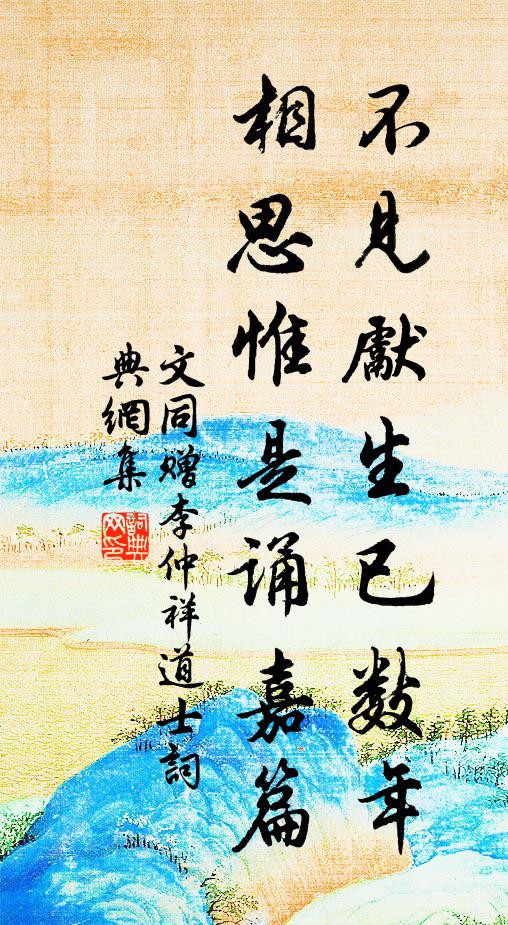 不見獻生已數年
相思惟是誦嘉篇
文同贈李仲祥道士詞
典網集
詞典网印